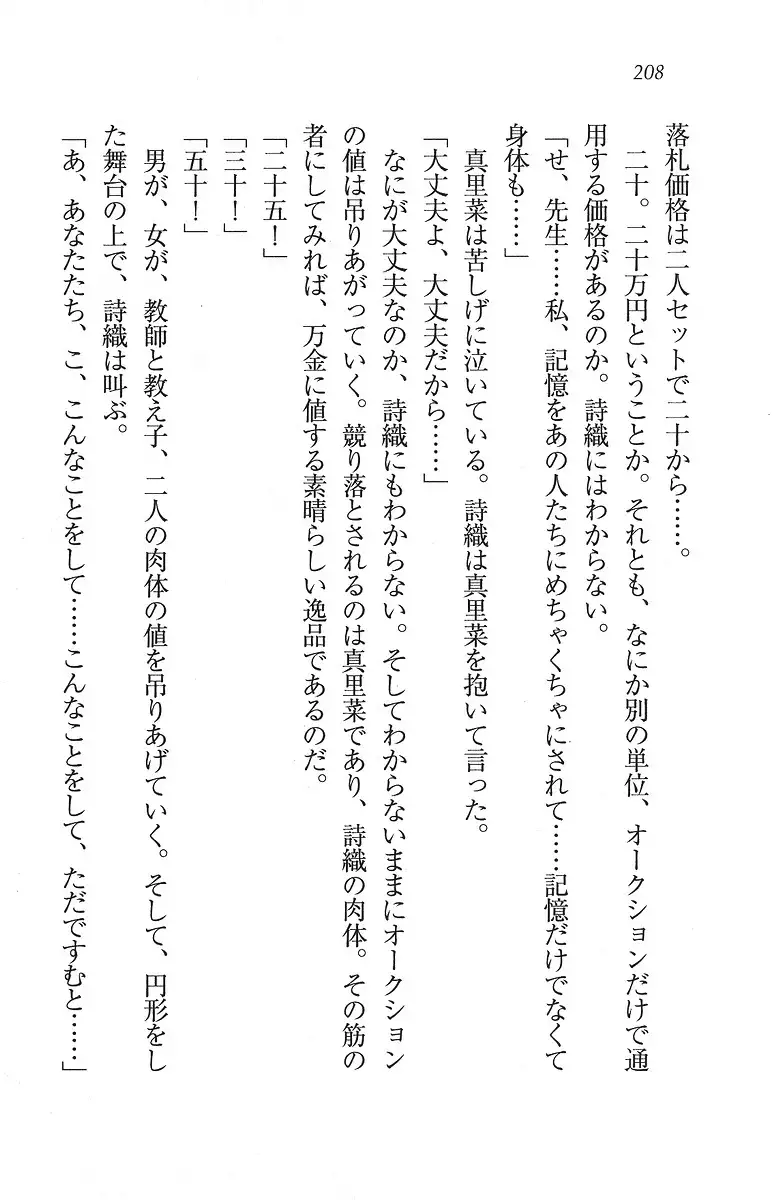 208
落札価格は二人セットで二十から……。
二十。二十万円ということか。それとも、なにか別の単位、オークションだけで通
用する価格があるのか。詩織にはわからない。
「せ、先生……私、記憶をあの人たちにめちゃくちゃにされて……記憶だけでなくて
身体も……」
真里菜は苦しげに泣いている。詩織は真里菜を抱いて言った。
「大丈夫よ、大丈夫だから……」
なにが大丈夫なのか、詩織にもわからない。そしてわからないままにオークション
の値は吊りあがっていく。競り落とされるのは真里菜であり、詩織の肉体。その筋の
者にしてみれば、万金に値する素晴らしい逸品であるのだ。
「二十五！」
「三十！」
「五十！」
男が、女が、教師と教え子、二人の肉体の値を吊りあげていく。そして、円形をし
た舞台の上で、詩織は叫ぶ。
「あ、あなたたち、こ、こんなことをして……こんなことをして、ただですむと……」